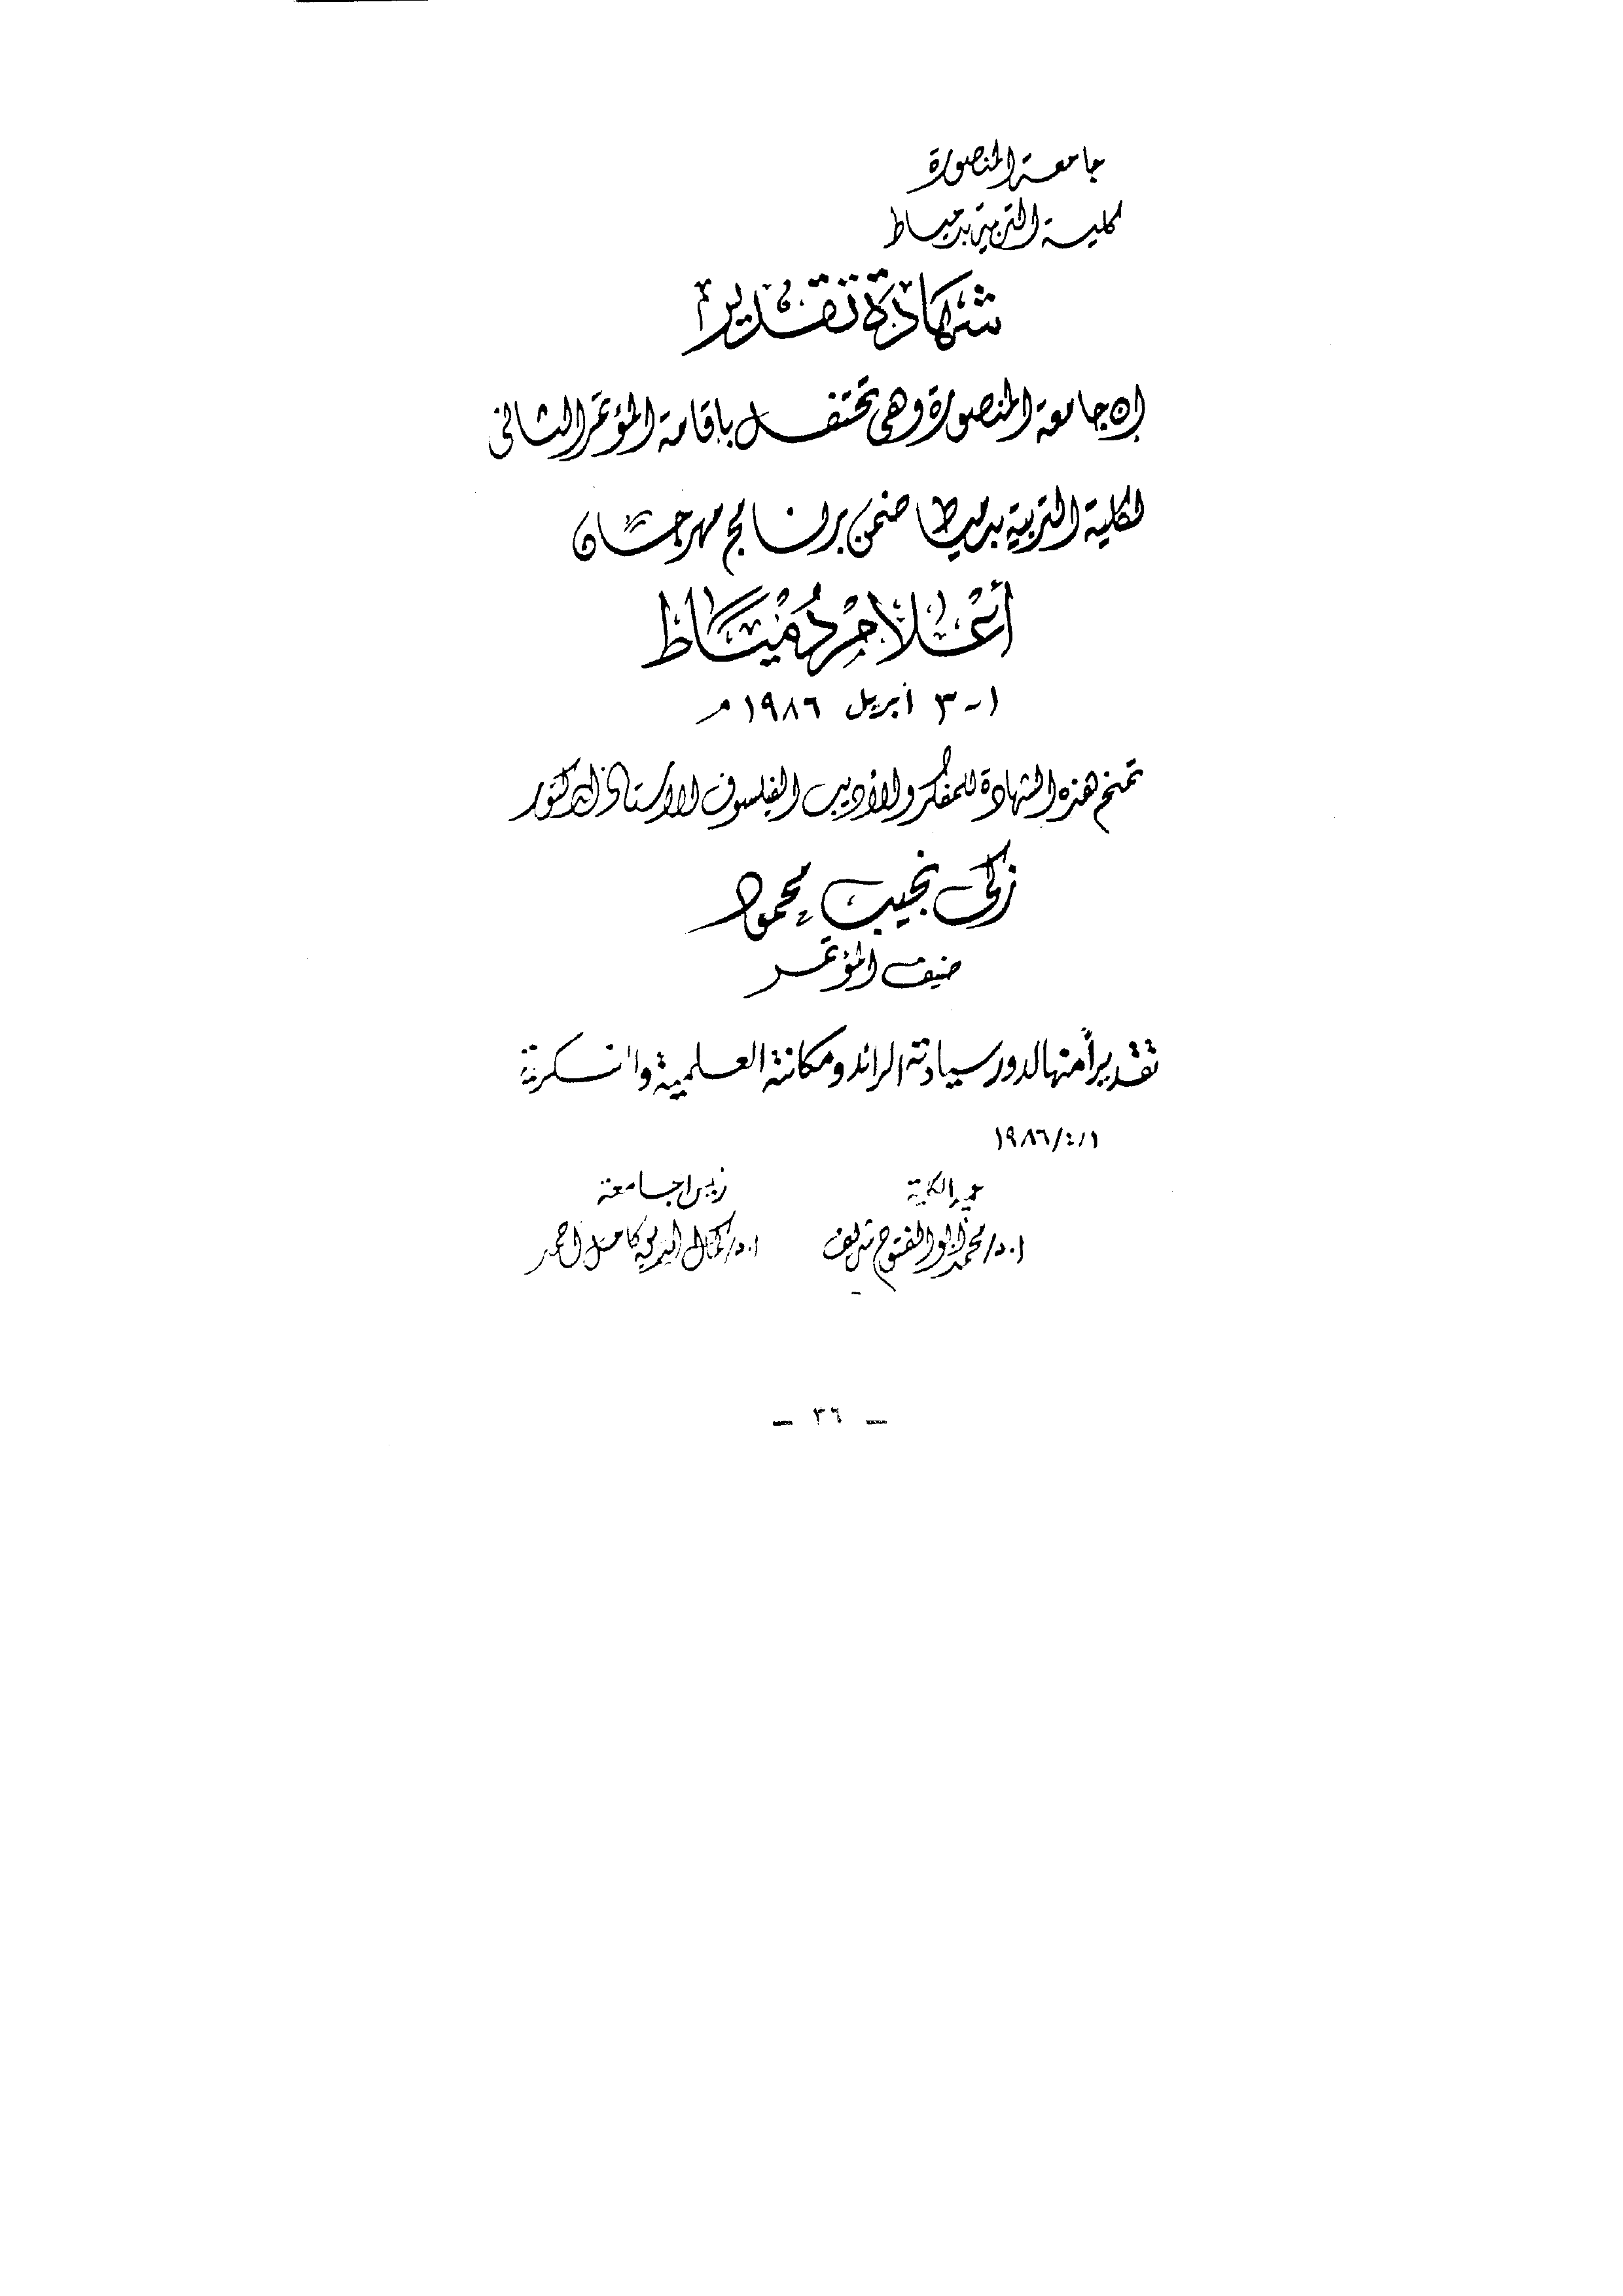 جامعة المنصورة
كلية التربية بدمياط
شهادة تقدير
إن جامعة المنصورة وهى تحتفل بإقامة المؤتمر الثانى
لكلية التربية بدمياط ضمن برنامج مهرجان
أعلام دمياط
١ - ٣ أبريل ١٩٨٦ م
تمنح هذه الشهادة للمفكر والأديب الفيلسوف الأستاذ الدكتور
زكى نجيب محمود
ضيف المؤتمر
تقديراً منها لدور سيادته الرائد ومكانته العلمية والفكرية
١٩٨٦/٤/١
عميد الكلية
رئيس الجامعة
ا.د/ محمد أبو الفتوح شريف
ا.د/ كمال الدين كامل أحمد
ـ ٣٦ ـ